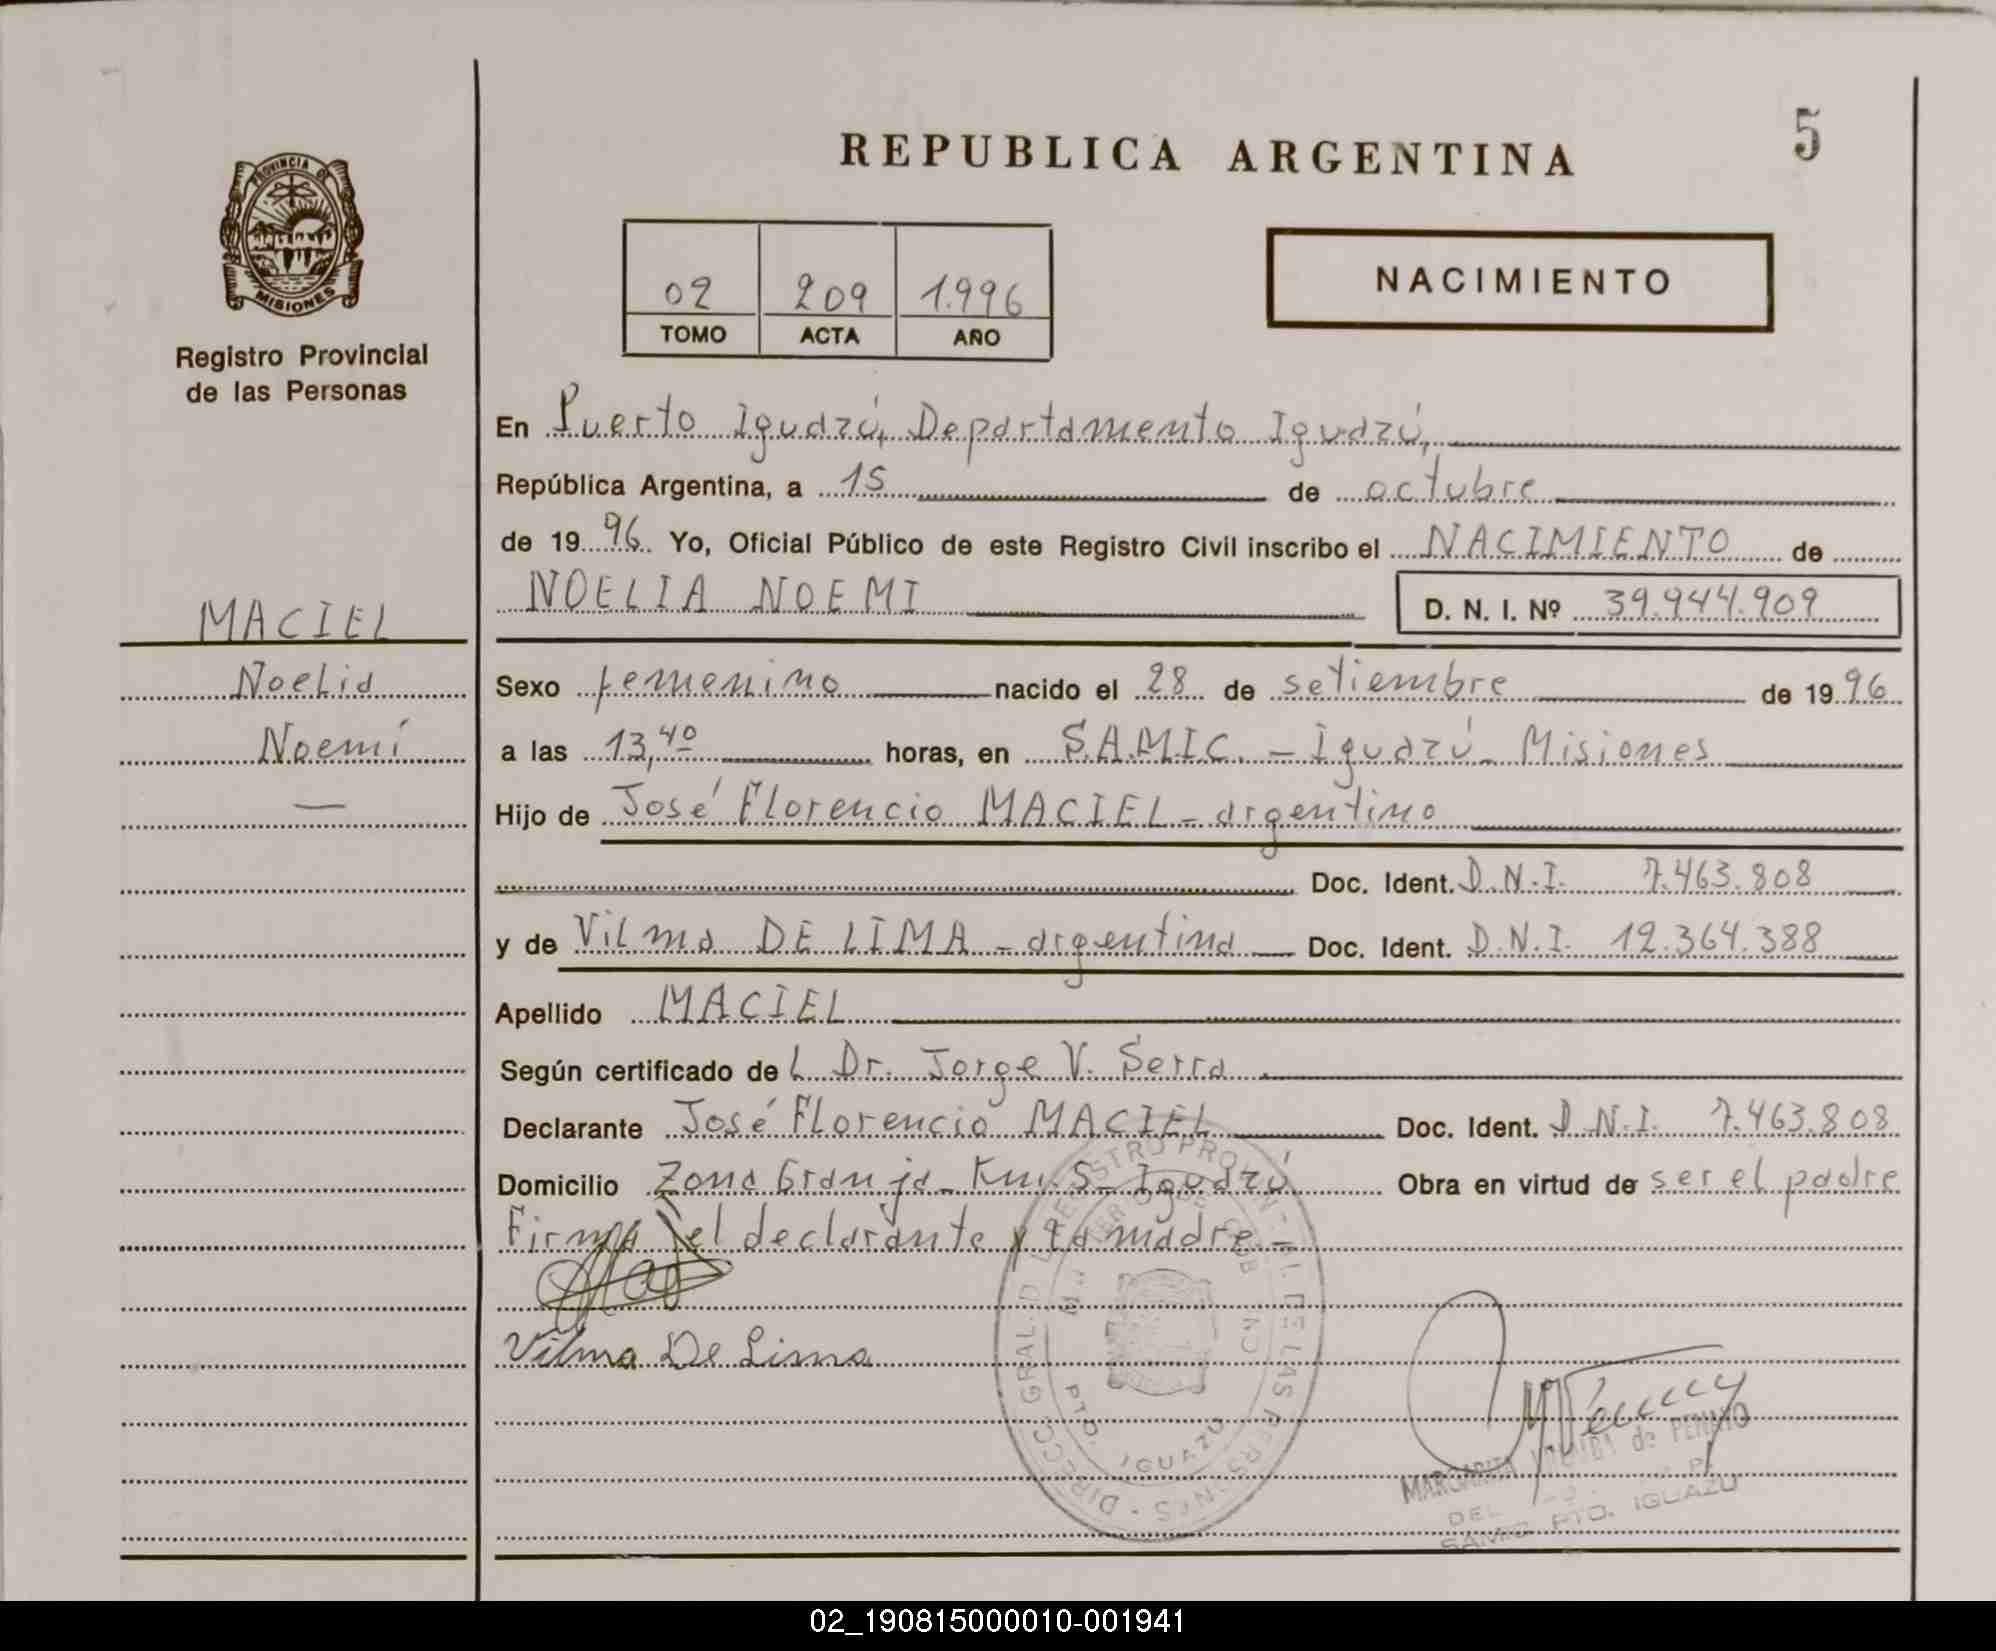 REPUBLICA ARGENTINA
5
PROVINCIA DE
MISIONES
Registro Provincial
de las Personas
02 209 1.996
TOMO ACTA AÑO
NACIMIENTO
En Puerto Iguazú, Departamento Iguazú,
República Argentina, a 15 de octubre
de 1996. Yo, Oficial Público de este Registro Civil inscribo el NACIMIENTO de
NOELIA NOEMI D. N. I. Nº 39.944.909
MACIEL
Noelia
Noemí
—
Sexo femenino nacido el 28 de setiembre de 1996
a las 13,40 horas, en S.A.M.I.C. - Iguazú - Misiones
Hijo de José Florencio MACIEL - argentino
Doc. Ident. D.N.I. 7.463.808
y de Vilma DE LIMA - argentina Doc. Ident. D.N.I. 12.364.388
Apellido MACIEL
Según certificado del Dr. Jorge V. Serra
Declarante José Florencio MACIEL Doc. Ident. D.N.I. 7.463.808
Domicilio Zona Granja - Km. 5 - Iguazú Obra en virtud de ser el padre
Firma del declarante y la madre -
Vilma De Lima
DIRECC. GRAL. D L REGISTRO PROVIN. DE LAS PERSONES
PTO. IGUAZU
MARGARITA de PENAYO
DEL
SAMIC PTO. IGUAZU
02_190815000010-001941